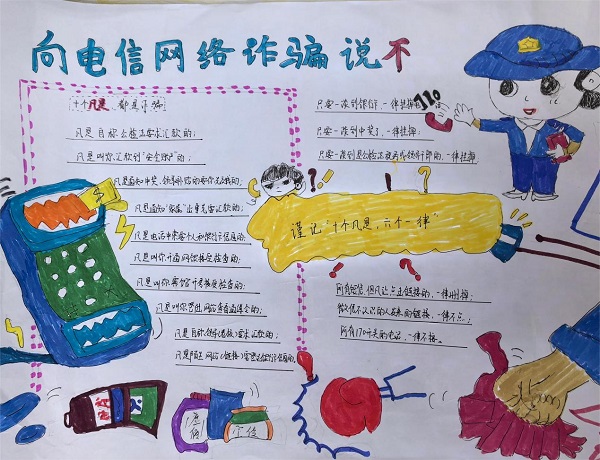 向电信网络诈骗说不
十个凡是,都是诈骗
凡是自称公检法要求汇款的;
凡是叫你汇款到“安全账户”的;
凡是通知中奖、领奖
凡是通知“家属”出事先要汇款的;
凡是在电话中索要个人和银行卡信息的;
凡是叫你开通网银接受检查的;
凡是叫你宾馆开房接受检查的;
凡是叫你登陆网站查看通缉令的;
凡是自称领导(老板)要求汇款的;
凡是陌生网站(链接)要登记银行卡信息的。
只要一谈到银行卡,一律挂掉
只要一谈到中奖了,一律挂掉;
只要一谈到是公检法税务或领导干部的,一律挂掉
110
谨记“十个凡是,六个一律”
所有短信,但凡让点击链接的,一律删掉;
微信不认识的人发来的链接,一律不点;
所有170开头的电话,一律不接。